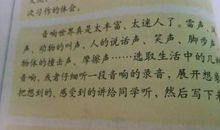 次习作的体会。
音响世界真是太丰富、太迷人了。雷声、
声、动物的叫声、人的说话声、笑声、脚步声
物体的撞击声、摩擦声……选取生活中的几种
音响，或者仔细听一段音响的录音，展开想象
把想到的、感受到的讲给同学听，然后写下来